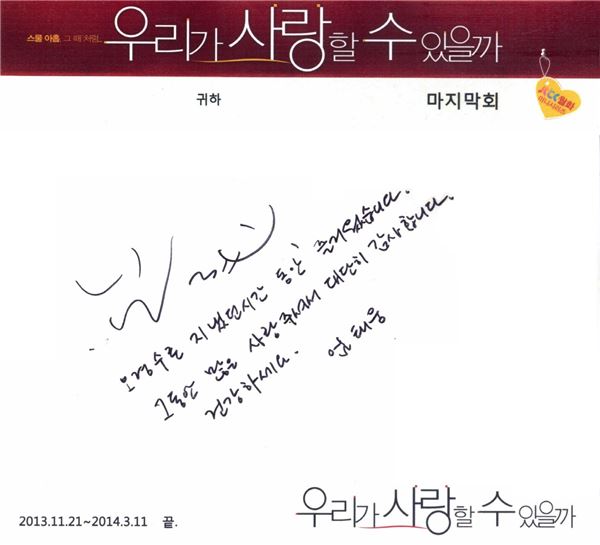 스물 아홉, 그 때 처럼..
우리가 사랑할 수 있을까
귀하
마지막회
JTBC 월화
미니시리즈
오경수로 지냈던시간 동안 즐거웠습니다.
그동안 많은 사랑 주셔서 대단히 감사합니다.
건강하세요.
엄태웅
2013.11.21~2014.3.11 끝.
우리가 사랑할 수 있을까